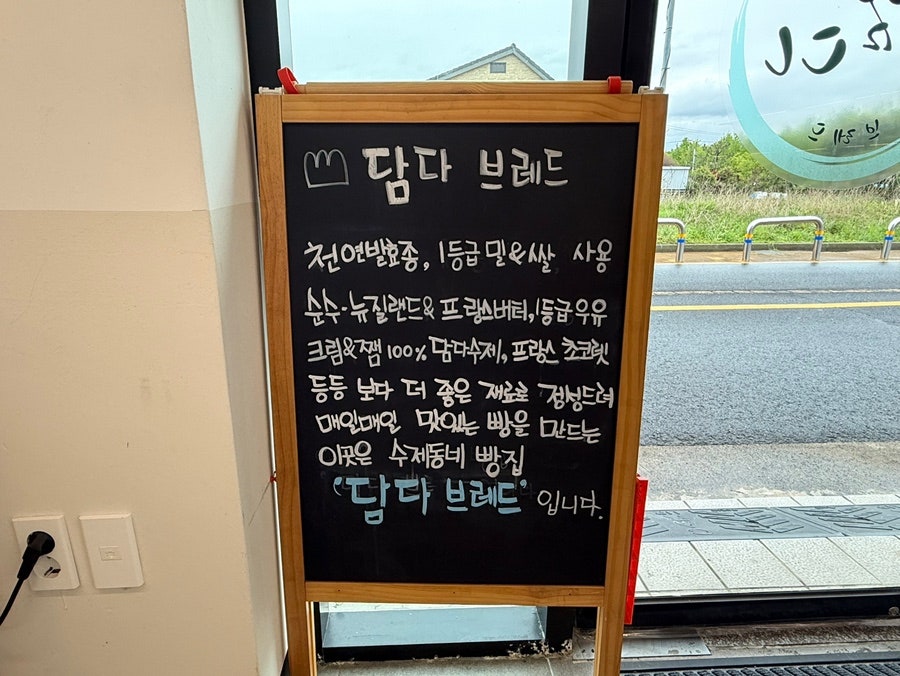 담다 브레드
천연발효종, 1등급 밀&쌀 사용
순수·뉴질랜드&프랑스버터, 1등급우유
크림&잼 100% 담다수제, 프랑스 초코렛
등등 보다 더 좋은 재료로 정성드려
매일매일 맛있는 빵을 만드는
이곳은 수제동네 빵집
'담다 브레드' 입니다.
브레드